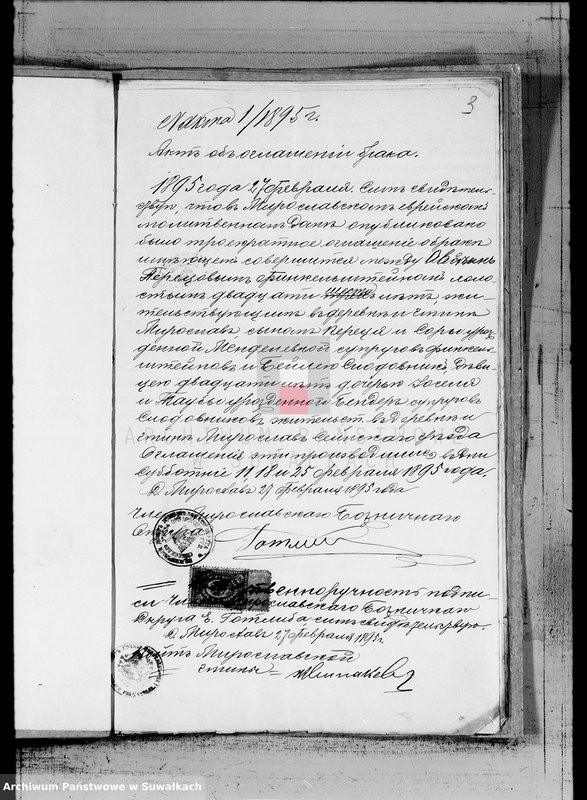 3
1/1895 г.
Актъ объ оглашеніи брака.
1895 года 27 февраля. Симъ свидѣтель-
ствую, что въ Мирославскомъ еврейскомъ
молитвенномъ Домѣ опубликовано
было троекратное оглашеніе о бракѣ
имѣющемъ совершится между
Перецовымъ Финкельштейномъ холо-
стымъ двадцати шести лѣтъ, жи-
тельствующимъ въ деревнѣ и гминѣ
Мирославъ сыномъ Переца и Соры урож-
денной Менделевной супруговъ Финкель-
штейновъ и Бейлею Слодовникъ дѣви-
цею двадцати лѣтъ дочерью Іоселя
и Таубы урожденной Бендеръ супруговъ
Слодовниковъ жительст. въ деревнѣ и
гминѣ Мирославъ Сейнскаго уѣзда
Оглашенія эти производились въ дни
субботніе 11, 18 и 25 февраля 1895 года.
Д. Мирославъ 27 февраля 1895 года
Членъ Мирославскаго Божничнаго
Готлибъ
подпи-
си Члена Мирославскаго Божничнаго
Округа Е. Готлиба симъ свидѣтельствую.
Д. Мирославъ 27 февраля 1895 г.
Войтъ Мирославской
гмины
ARCHIWUM PAŃSTWOWE
Archiwum Państwowe w Suwałkach